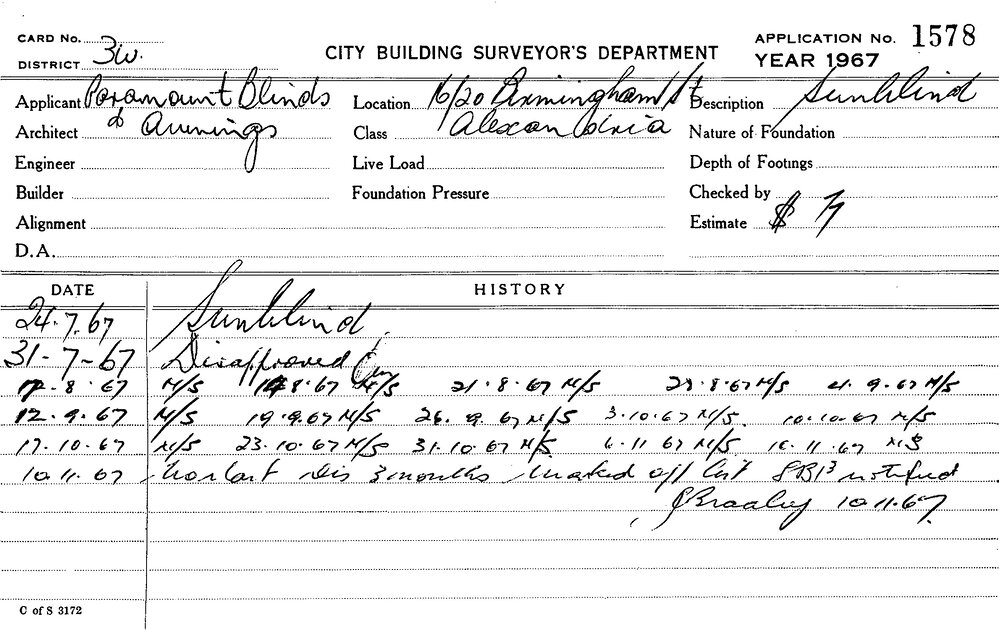 CARD No.
DISTRICT 3W.
CITY BUILDING SURVEYOR'S DEPARTMENT
APPLICATION No. 1578
YEAR 1967
Applicant Paramount Blinds
Location 16/20 Birmingham St
Description Sunblind
Architect & Awnings
Class Alexandria
Nature of Foundation
Engineer
Live Load
Depth of Footings
Builder
Foundation Pressure
Checked by
Alignment
Estimate $
D.A.
DATE HISTORY
24.7.67 Sunblind
31-7-67 Disapproved
8.67 N/S 8.67 N/S 21.8.67 N/S 28.8.67 N/S 9.67 N/S
12.9.67 N/S 19.9.67 N/S 26.9.67 N/S 3.10.67 N/S. 10.10.67 N/S
17.10.67 N/S 23.10.67 N/S 31.10.67 N/S 6.11.67 N/S. 11.67 N/S
10.11.67 3 months marked off list notified
10.11.67
C of S 3172